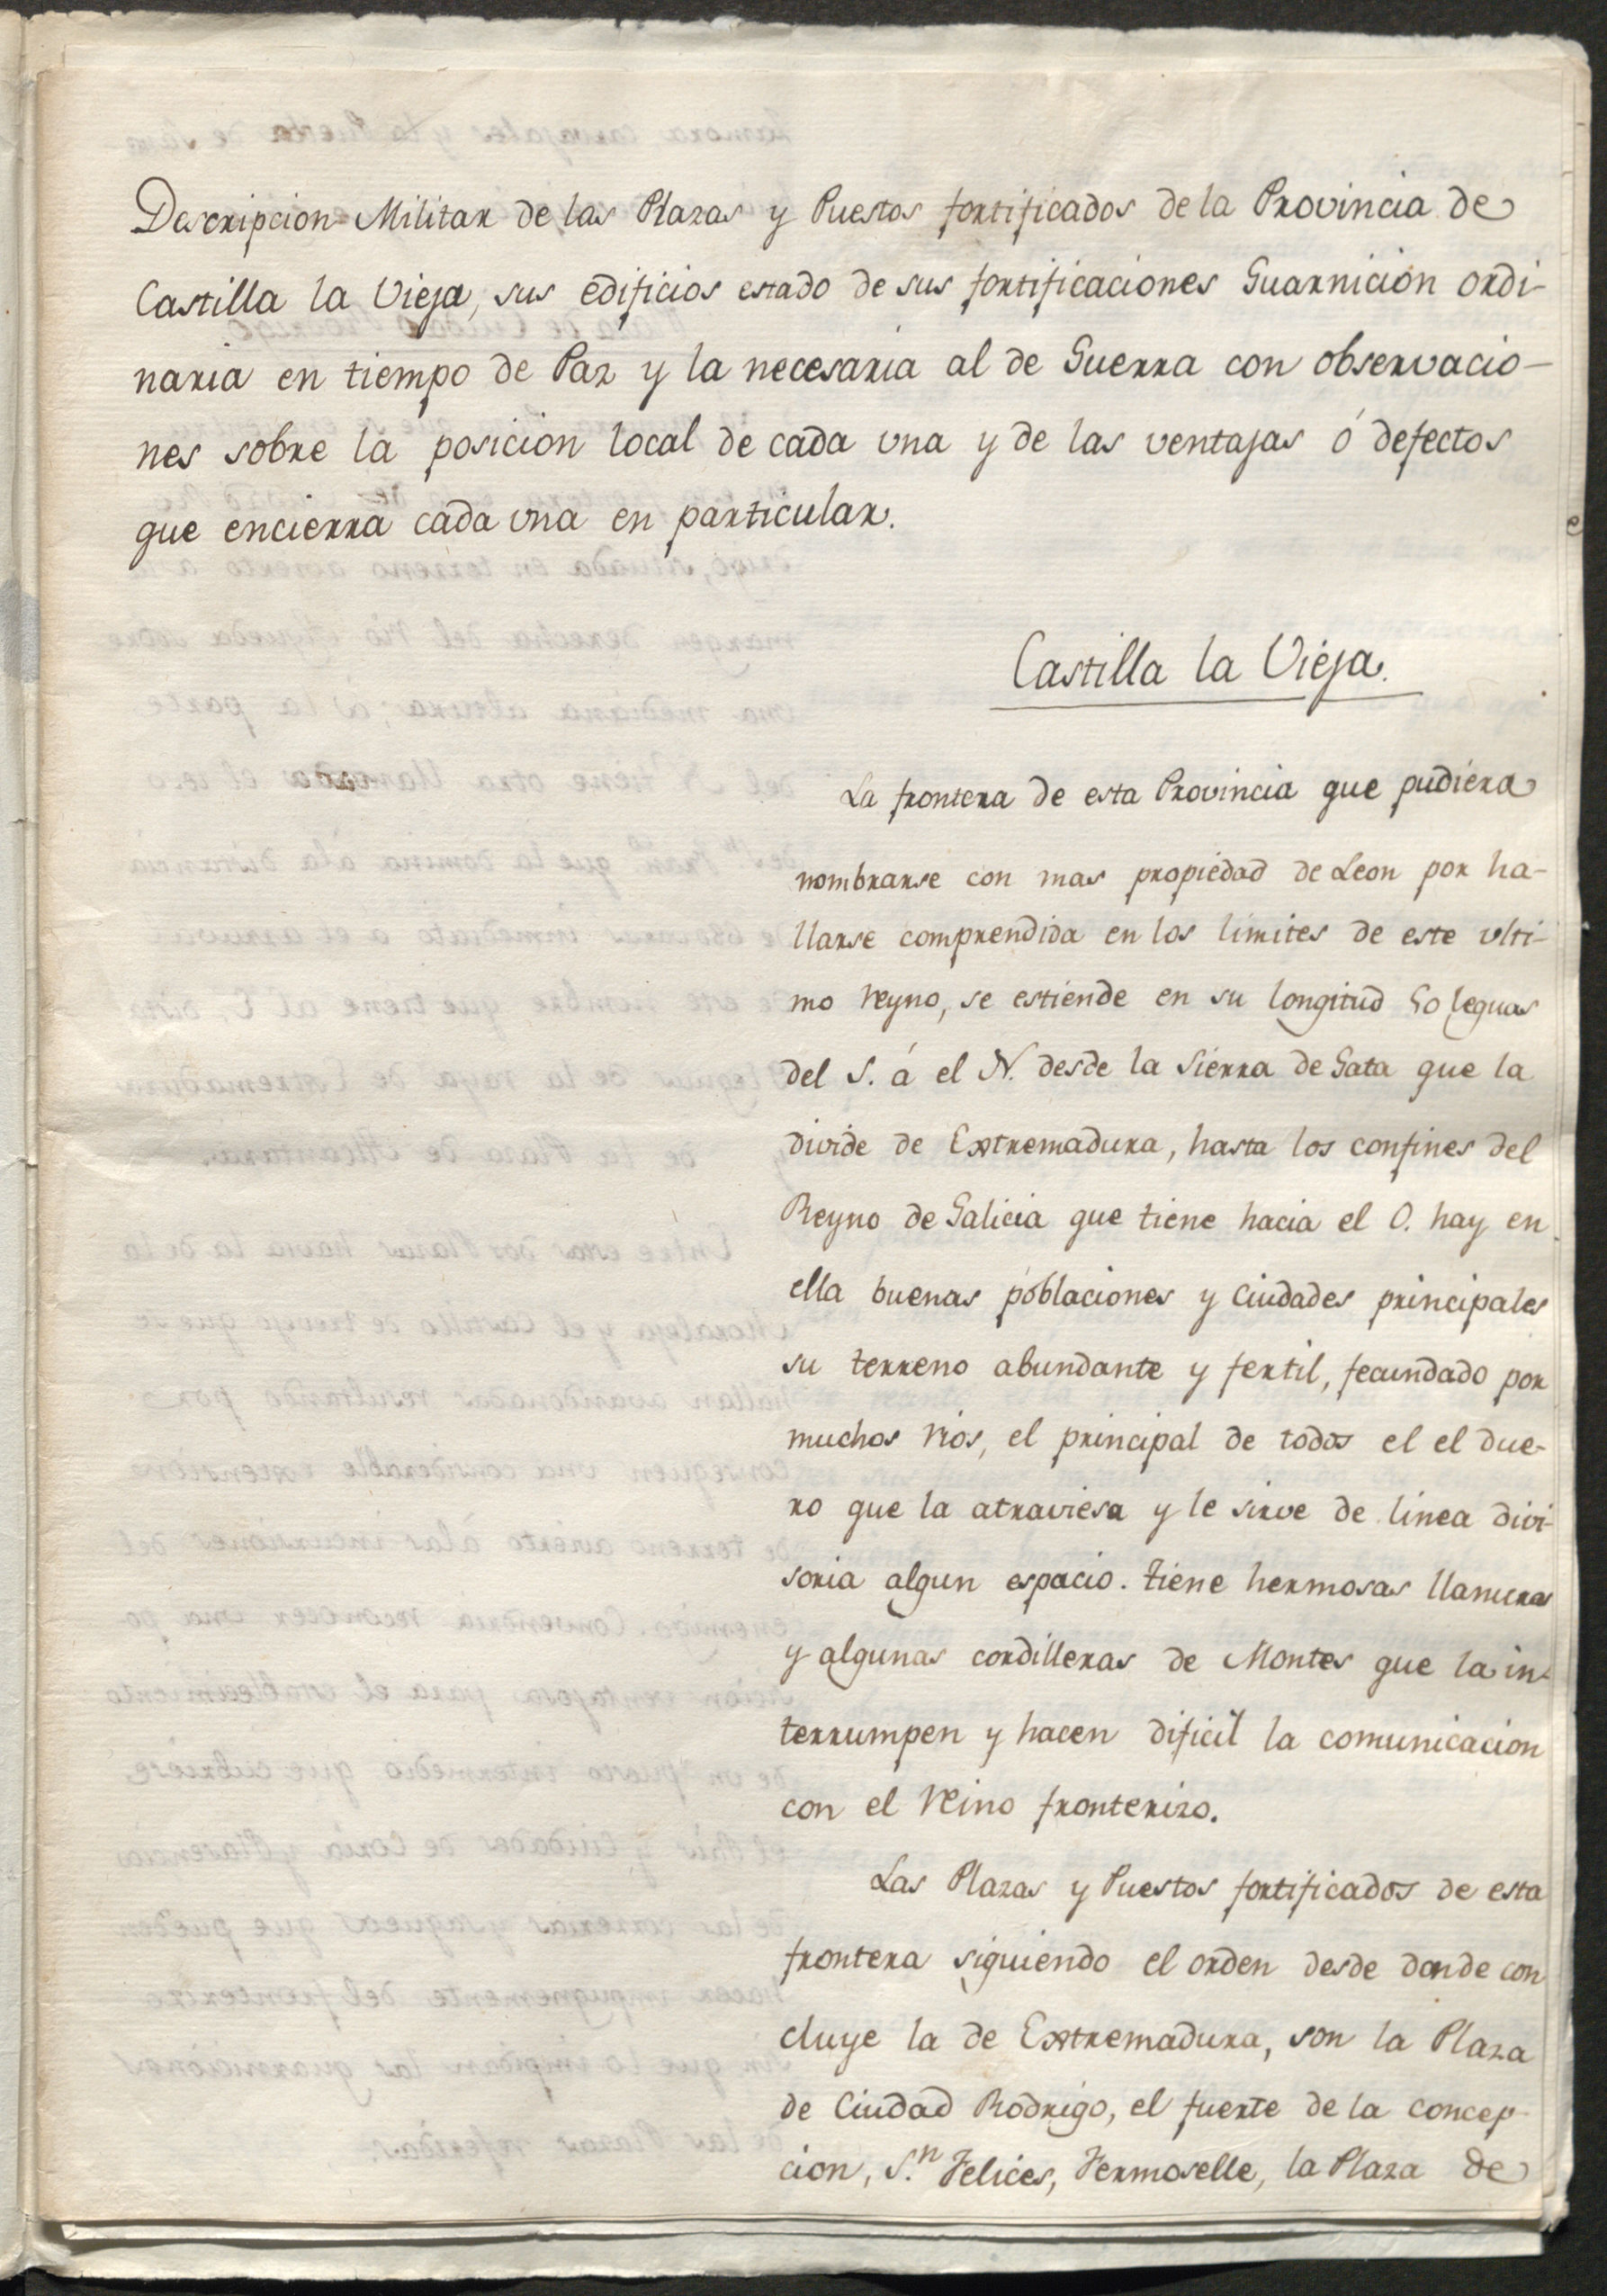 Descripcion Militar de las Plazas y Puestos fortificados de la Provincia de
Castilla la Vieja, sus edificios estado de sus fortificaciones Guarnicion ordi-
naria en tiempo de Paz y la necesaria al de Guerra con observacio-
nes sobre la posicion local de cada una y de las ventajas ó defectos
que encierra cada una en particular.
Castilla la Vieja.
La frontera de esta Provincia que pudiera
nombrarse con mas propiedad de Leon por ha-
llarse comprendida en los limites de este ulti-
mo reyno, se estiende en su longitud 50 leguas
del S. á el N. desde la Sierra de Gata que la
divide de Extremadura, hasta los confines del
Reyno de Galicia que tiene hacia el O. hay en
ella buenas poblaciones y Ciudades principales
su terreno abundante y fertil, fecundado por
muchos rios, el principal de todos el el due-
ro que la atraviesa y le sirve de linea divi-
soria algun espacio. tiene hermosas llanuras
y algunas cordilleras de Montes que la in-
terrumpen y hacen dificil la comunicacion
con el reino fronterizo.
Las Plazas y Puestos fortificados de esta
frontera siguiendo el orden desde donde con
cluye la de Extremadura, son la Plaza
de Ciudad Rodrigo, el fuerte de la Concep-
cion, S.n Felices, Fermoselle, la Plaza de